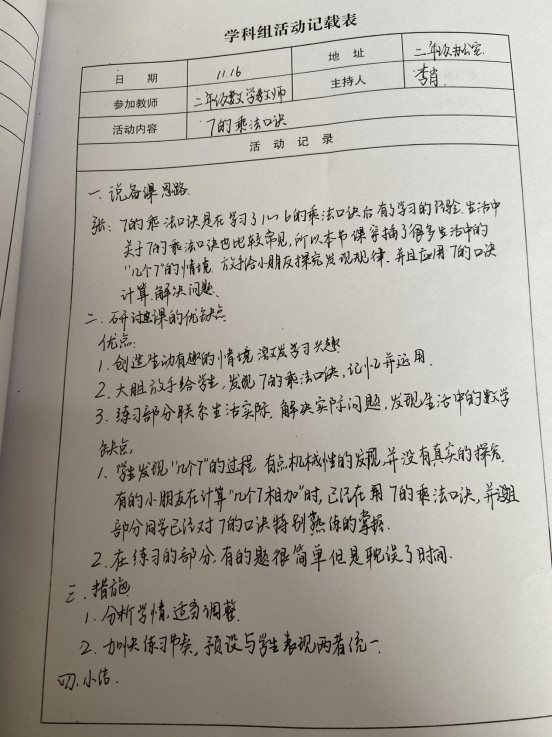 学科组活动记载表
日 期 11.16 地 址 二年级办公室
参加教师 二年级数学教师 主持人 李肖
活动内容 7的乘法口诀
活 动 记 录
一、说备课思路
张：7的乘法口诀是在学习了1～6的乘法口诀后有了学习的经验.生活中
关于7的乘法口诀也比较常见,所以本节课穿插了很多生活中的
"几个7"的情境 放手给小朋友探究发现规律.并且应用7的口诀
计算.解决问题.
二、研讨这课的优缺点
优点：
1.创造生动有趣的情境 激发学习兴趣
2.大胆放手给学生,发现7的乘法口诀,记忆并运用.
3.练习部分联系生活实际.解决实际问题,发现生活中的数学
缺点,
1.学生发现"几个7"的过程 有点机械性的发现,并没有真实的探究.
有的小朋友在计算"几个7相加"时,已经在用7的乘法口诀,并且
部分同学已经对7的口诀特别熟练的掌握.
2.在练习的部分,有的题很简单但是耽误了时间.
三.措施
1.分析学情,适当调整.
2.加快练习节奏,预设与学生表现两者统一.
四.小结.